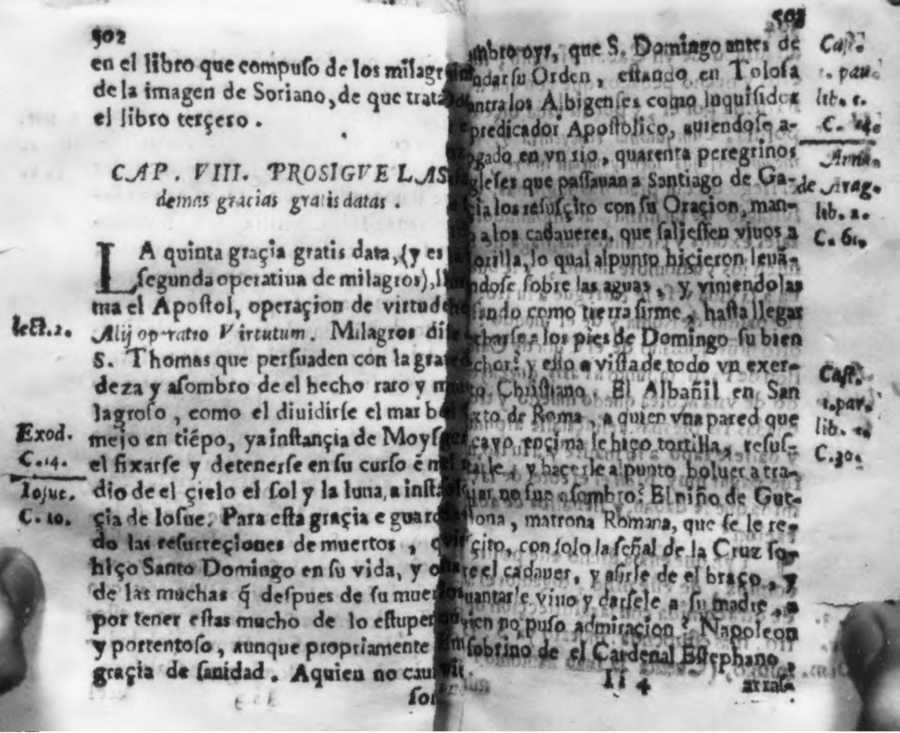 502
en el libro que compuso de los milagr
de la imagen de Soriano, de que trata
el libro terçero.
CAP. VIII. PROSIGVE LAS
demas gracias gratis datas.
LA quinta graçia gratis data, (y es
segunda operatiua de milagros),
ma el Apostol, operaçion de virtude
lect. 2.
Alij operatio Virtutum. Milagros
S. Thomas que persuaden con la
deza y asombro de el hecho raro y
lagroso, como el diuidirse el mar
Exod.
C. 14.
mejo en tiẽpo, ya instançia de Moys
el fixarse y detenerse en su curso
Iosue.
C. 10.
dio de el çielo el sol y la luna, a
çia de Iosue. Para esta graçia e
do las resurreçiones de muertos,
hiço Santo Domingo en su vida, y
de las muchas q̃ despues de su
por tener estas mucho de lo
y portentoso, aunque propriamente
graçia de sanidad. Aquien no
503
oyr, que S. Domingo antes de
su Orden, estando en Tolosa
los Albigenses como Inquisidor
predicador Apostolico, auiendose a-
gado en vn rio, quarenta peregrinos
gleses que passauan a Santiago de Ga-
los resusçito con su Oraçion, man-
a los cadaueres, que saliessen viuos a
orilla, lo qual al punto hiçieron leuã-
dose sobre las aguas, y viniendolas
como tierra firme, hasta llegar
a los pies de Domingo su bien
y esto a vista de todo vn exer-
Christiano. El Albañil en San
de Roma, a quien vna pared que
cayo ençima le hiço tortilla, resus-
y hacerle al punto boluer a tra-
no fue asombro? El niño de Gut-
matrona Romana, que se le re-
çito, con solo la señal de la Cruz so-
el cadauer, y asirle de el braço, y
viuo y darsele a su madre, a
no puso admiraçion? Napoleon
sobrino de el Cardenal Estephano
Ii 4
Cast.
lib. 1.
de Arag.
lib. 2.
C. 61.
Cast.
1. par.
lib. 1.
C. 30.